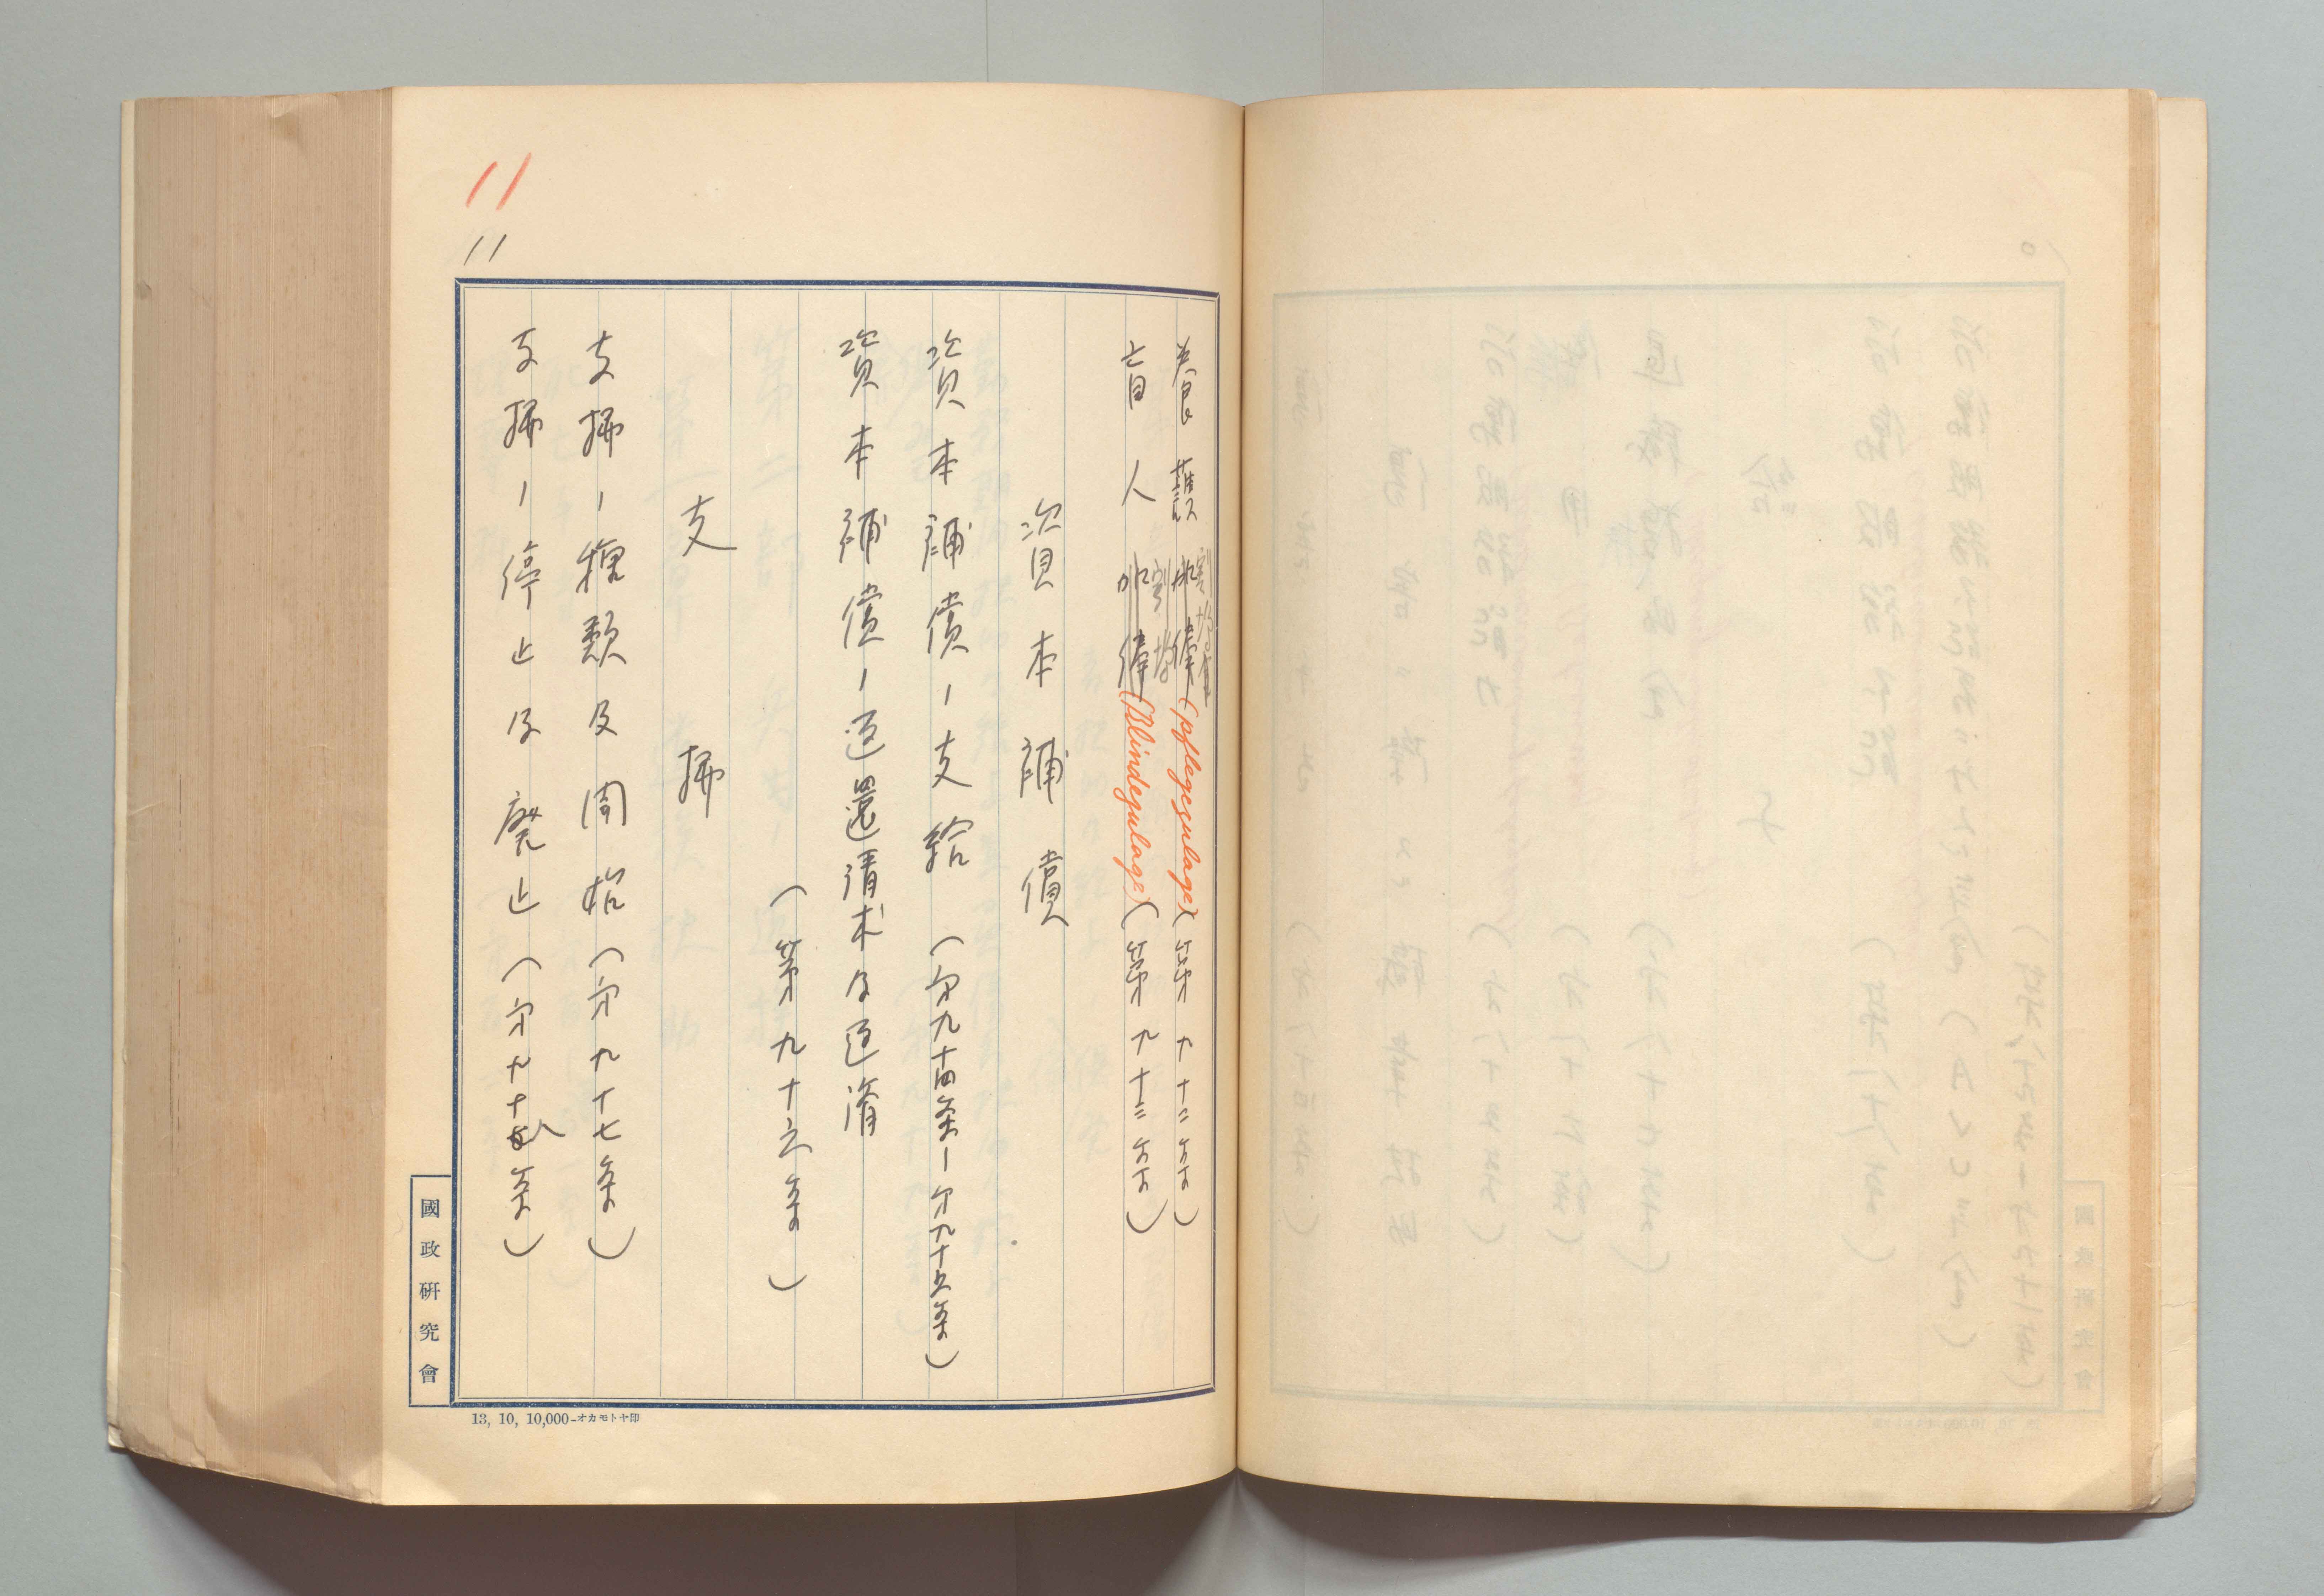 11
11
養護加俸割増金(pflegezulage)(第九十二条)
盲人加俸割増(Blindegulage)(第九十三条)
資本補償
資本補償ノ支給(第九十四条―第九十五条)
資本補償ノ返還請求及返済
(第九十六条)
支拂
支拂ノ種類及開始(第九十七条)
支拂ノ停止及廃止(第九十八条)
國政研究會
13, 10, 10,000-オカモトヤ印